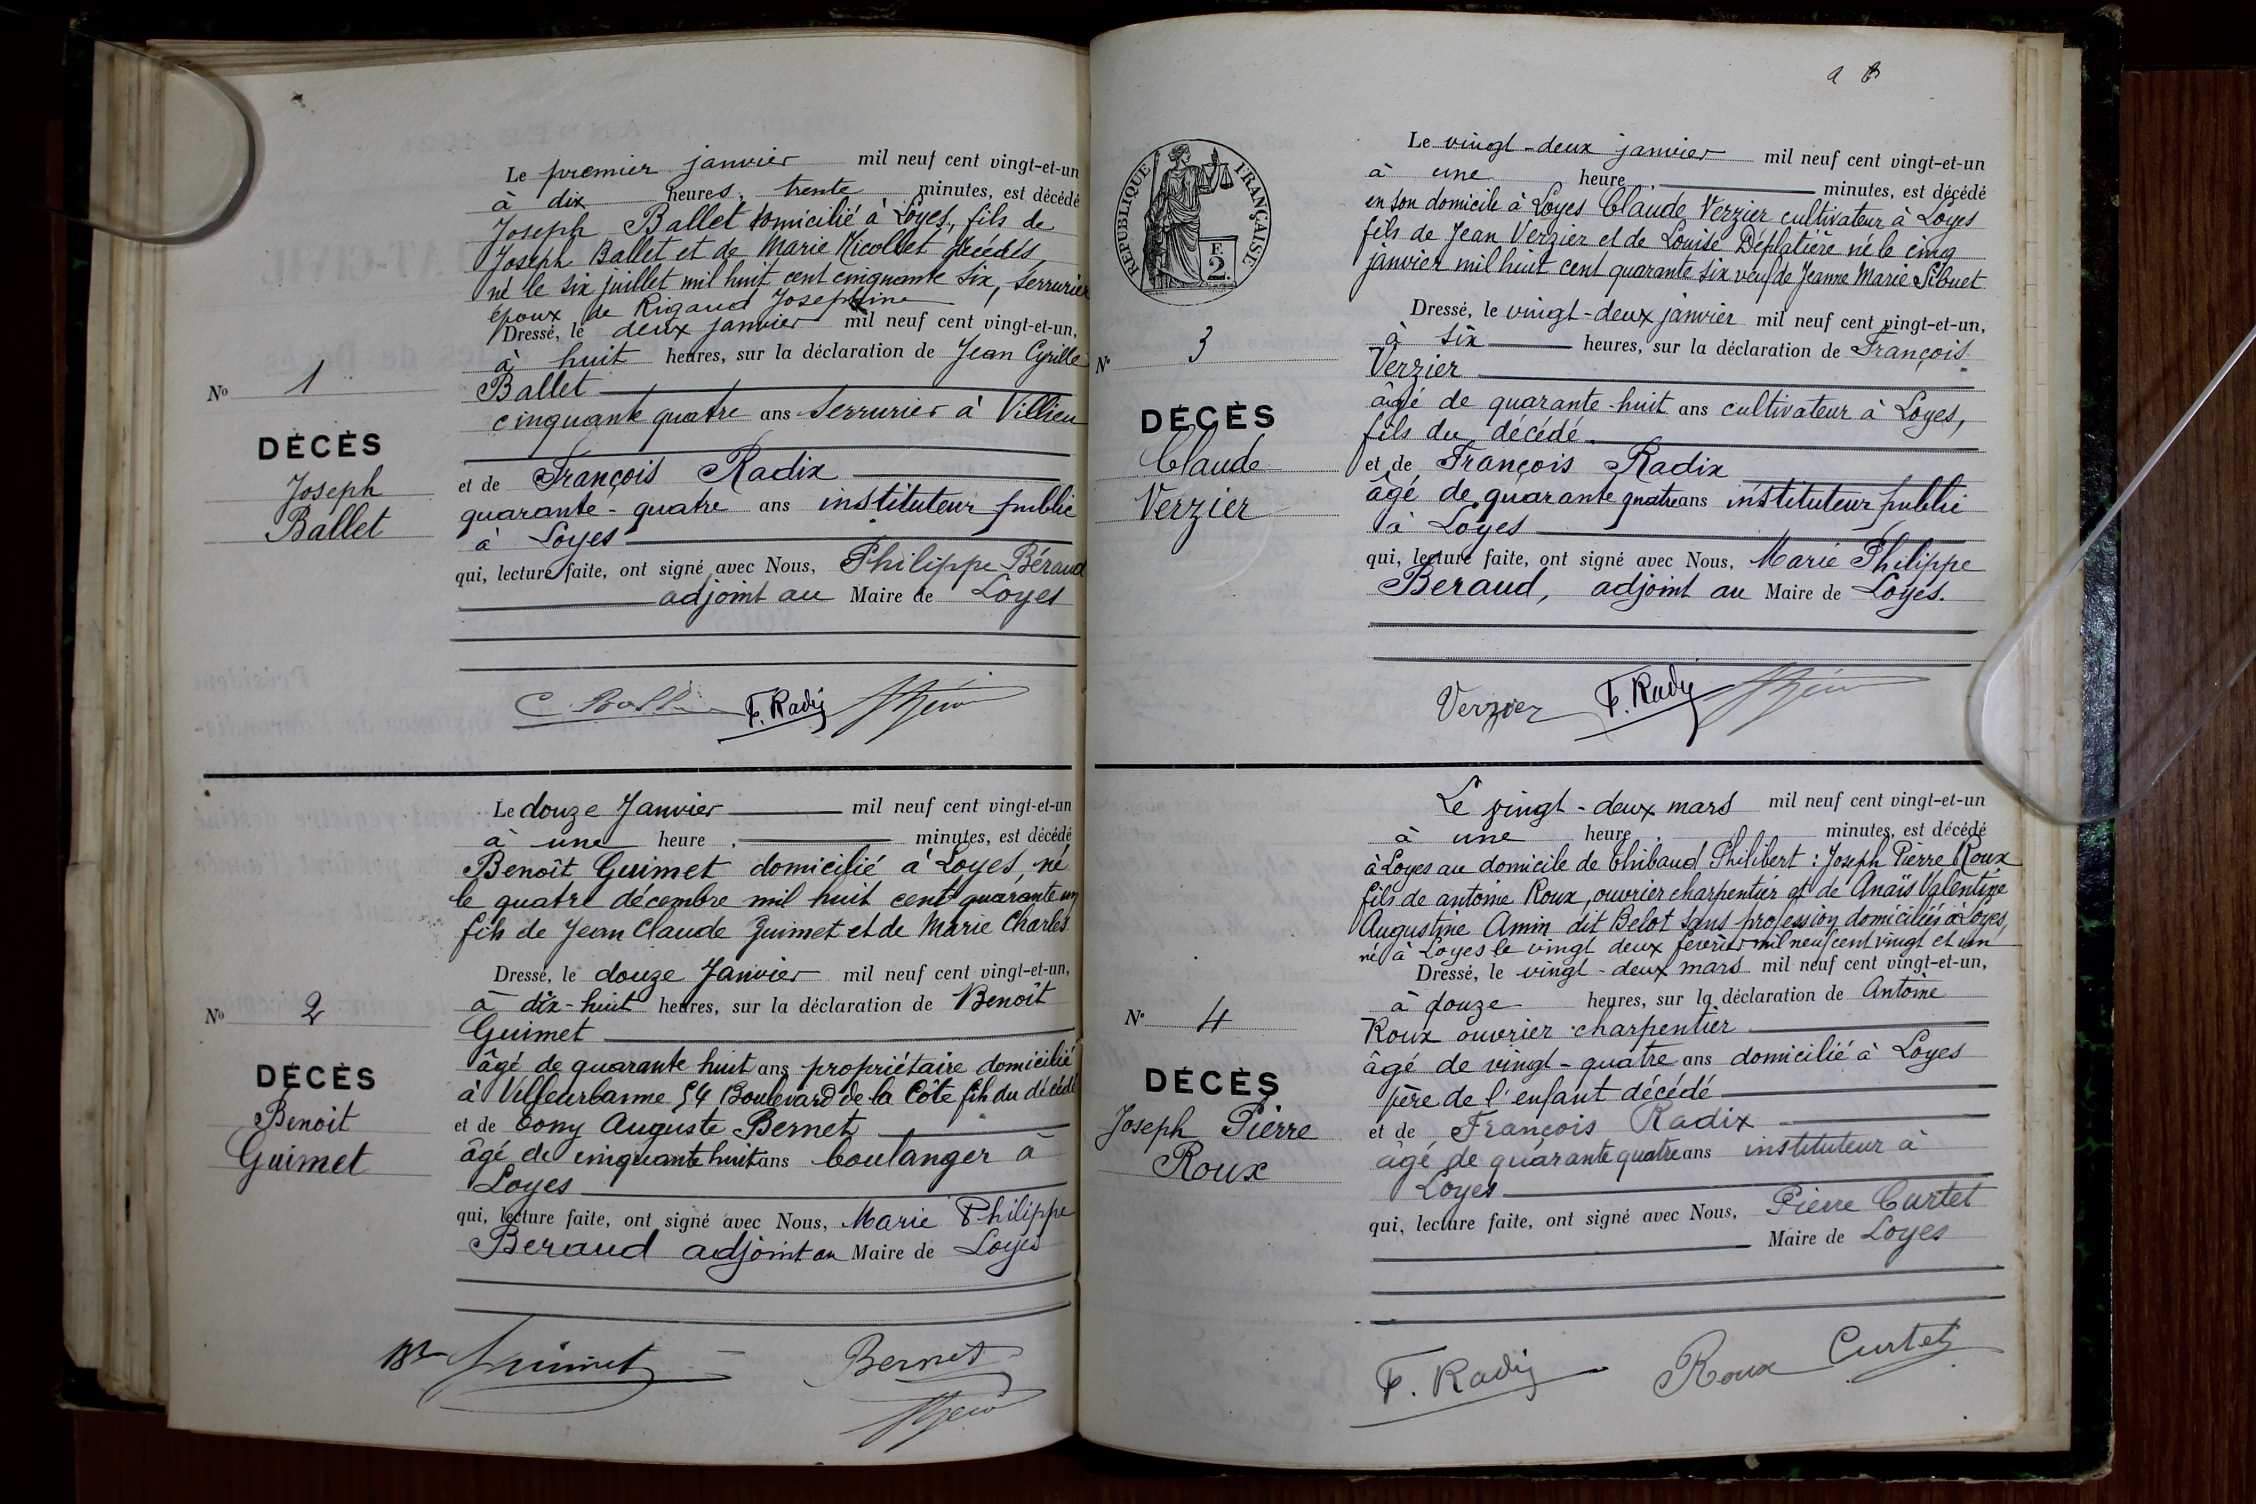 Le premier janvier mil neuf cent vingt-et-un
à dix heures, trente minutes, est décédé
Joseph Ballet domicilié à Loyes, fils de
Joseph Ballet et de Marie Nicollet décédés
né le six juillet mil huit cent cinquante six, serrurier
époux de Rigaud Josephine
Dressé, le deux janvier mil neuf cent vingt-et-un,
à huit heures, sur la déclaration de Jean Cyrille
Ballet
cinquante quatre ans serrurier à Villieu
et de François Radix
quarante-quatre ans instituteur public
à Loyes
qui, lecture faite, ont signé avec Nous, Philippe Béraud
adjoint au Maire de Loyes
No 1
DÉCÈS
Joseph
Ballet
F. Radix
Le douze Janvier mil neuf cent vingt-et-un
à une heure, minutes, est décédé
Benoît Guimet domicilié à Loyes, né
le quatre décembre mil huit cent quarante un
fils de Jean Claude Guimet et de Marie Charles
Dressé, le douze Janvier mil neuf cent vingt-et-un,
à dix-huit heures, sur la déclaration de Benoît
Guimet
âgé de quarante huit ans propriétaire domicilié
à Villeurbanne 54 Boulevard de la Côte fils du décédé
et de Tony Auguste Bernet
âgé de cinquante huit ans boulanger à
Loyes
qui, lecture faite, ont signé avec Nous, Marie Philippe
Beraud adjoint au Maire de Loyes
No 2
DÉCÈS
Benoit
Guimet
Guimet Bernet
RÉPUBLIQUE FRANÇAISE
2
Le vingt-deux janvier mil neuf cent vingt-et-un
à une heure, minutes, est décédé
en son domicile à Loyes Claude Verzier cultivateur à Loyes
fils de Jean Verzier et de Louise Déplatière né le cinq
janvier mil huit cent quarante six veuf de Jeanne Marie
Dressé, le vingt-deux janvier mil neuf cent vingt-et-un,
à six heures, sur la déclaration de François
Verzier
âgé de quarante-huit ans cultivateur à Loyes,
fils du décédé
et de François Radix
âgé de quarante quatre ans instituteur public
à Loyes
qui, lecture faite, ont signé avec Nous, Marie Philippe
Beraud, adjoint au Maire de Loyes.
No 3
DÉCÈS
Claude
Verzier
Verzier F. Radix
Le vingt-deux mars mil neuf cent vingt-et-un
à une heure, minutes, est décédé
à Loyes au domicile de Thibaud Philibert : Joseph Pierre Roux
fils de antoine Roux, ouvrier charpentier et de Anaïs Valentine
Augustine Amin dit Belot sans profession domiciliés à Loyes,
né à Loyes le vingt deux fevrier mil neuf cent vingt et un
Dressé, le vingt-deux mars mil neuf cent vingt-et-un,
à douze heures, sur la déclaration de Antoine
Roux ouvrier charpentier
âgé de vingt-quatre ans domicilié à Loyes
père de l'enfant décédé
et de François Radix
âgé de quarante quatre ans instituteur à
Loyes
qui, lecture faite, ont signé avec Nous, Pierre Curtet
Maire de Loyes
No 4
DÉCÈS
Joseph Pierre
Roux
F. Radix Roux Curtet